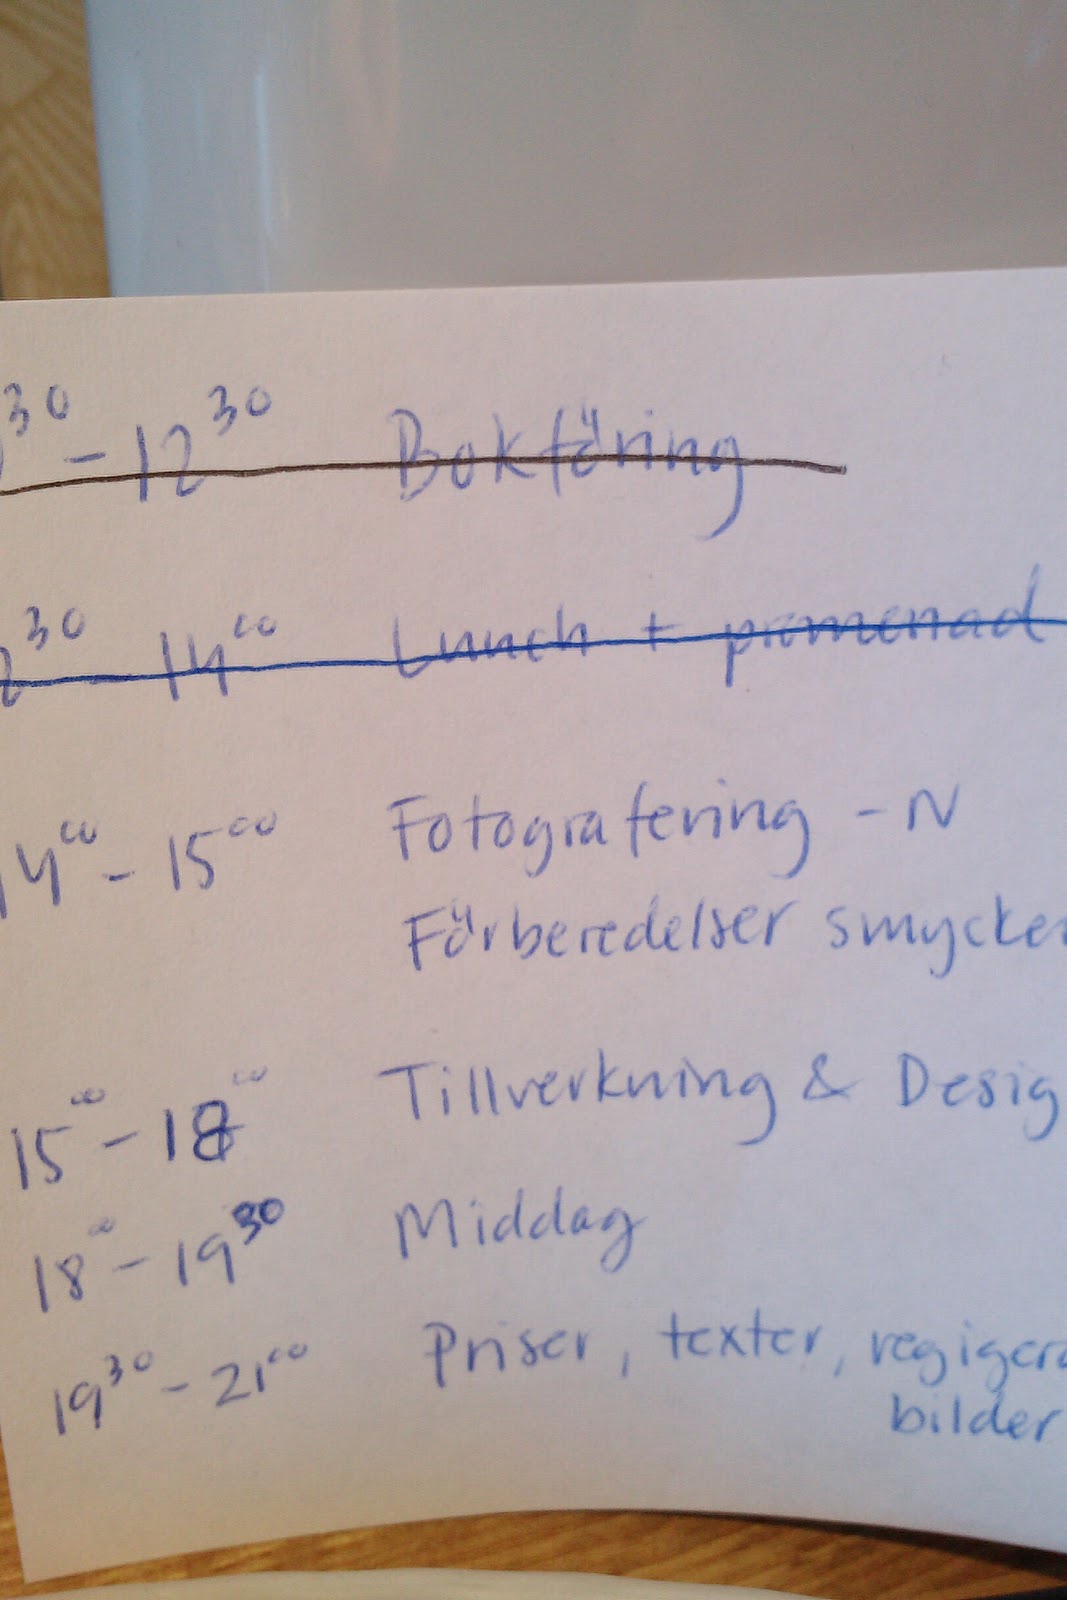 30 - 12 30 Bokföring
30 14 00 Lunch + promenad
14 00 - 15 00 Fotografering - N
Förberedelser smycken
15 00 - 18 00 Tillverkning & Desig
18 00 - 19 30 Middag
19 30 - 21 00 Priser, texter, regigera
bilder